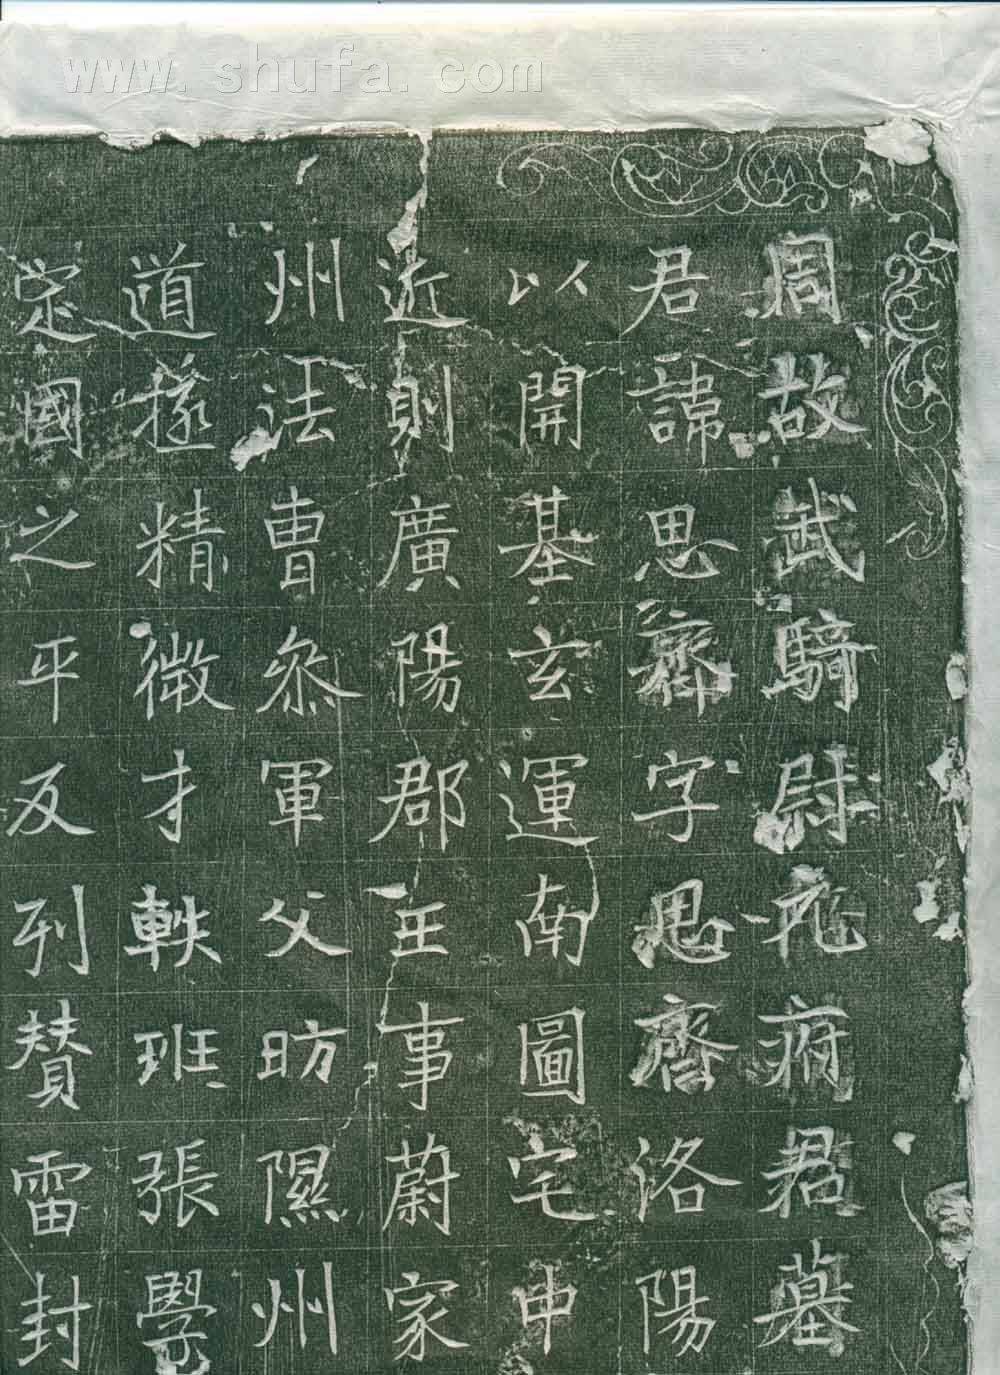 www.shufa.com
周故武騎尉元府君墓
君諱思齊字思齊洛陽
以開基玄運南圖宅申
近則廣陽郡王事蔚家
州法曹叅軍父昉隰州
道探精微才軼班張學
定國之平反列賛雷封